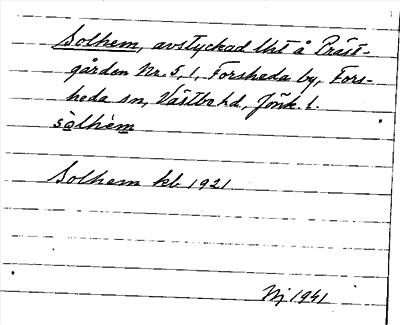 Solhem, avstyckad lht å Präst-
gården Nr. 5, 1, Forsheda by, Fors-
heda sn, Västbo hd, Jönk. l.
sòlhèm
Solhem kb 1921
Nj 1941